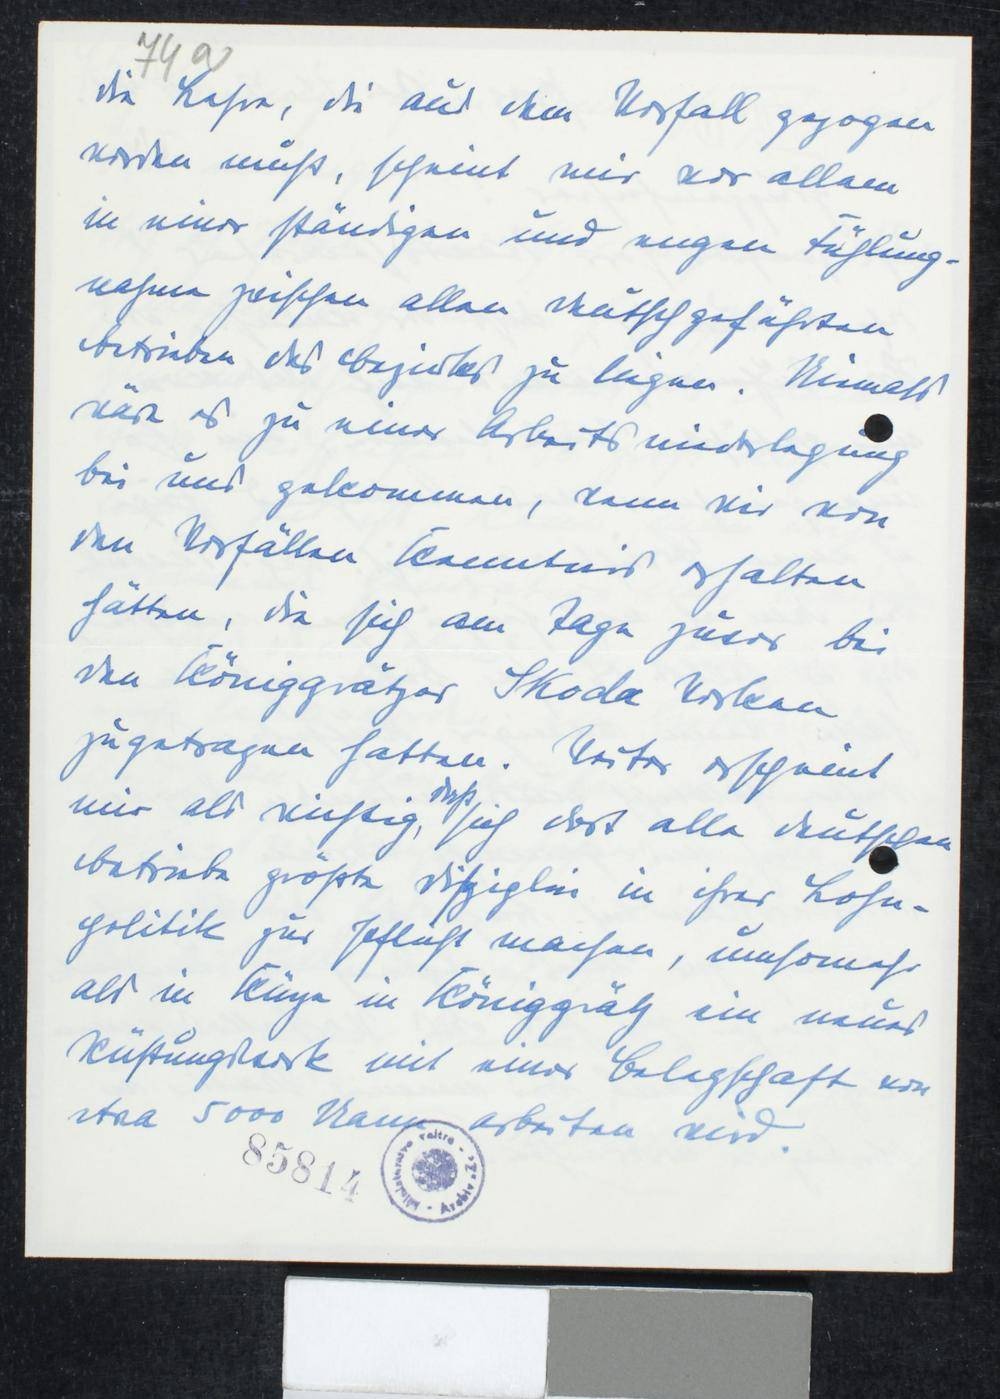 74a
die Lehre, die aus dem Vorfall gezogen
werden muß, scheint mir vor allem
in einer ständigen und engen Fühlung-
nahme zwischen allen deutschgeführten
Betrieben des Bezirkes zu liegen. Niemals
wäre es zu einer Arbeitsniederlegung
bei uns gekommen, wenn wir von
den Vorfällen Kenntnis erhalten
hätten, die sich am Tage zuvor bei
den Königgrätzer Skoda Werken
zugetragen hatten. Weiter erscheint
mir als wichtig, daß sich dort alle deutschen
Betriebe größte Disziplin in ihrer Lohn-
politik zur Pflicht machen, umsomehr
als in Kürze in Königgrätz ein neues
Rüstungswerk mit einer Belegschaft von
etwa 5000 Mann arbeiten wird.
85814
Ministerstvo vnitra - "Z" Archiv -